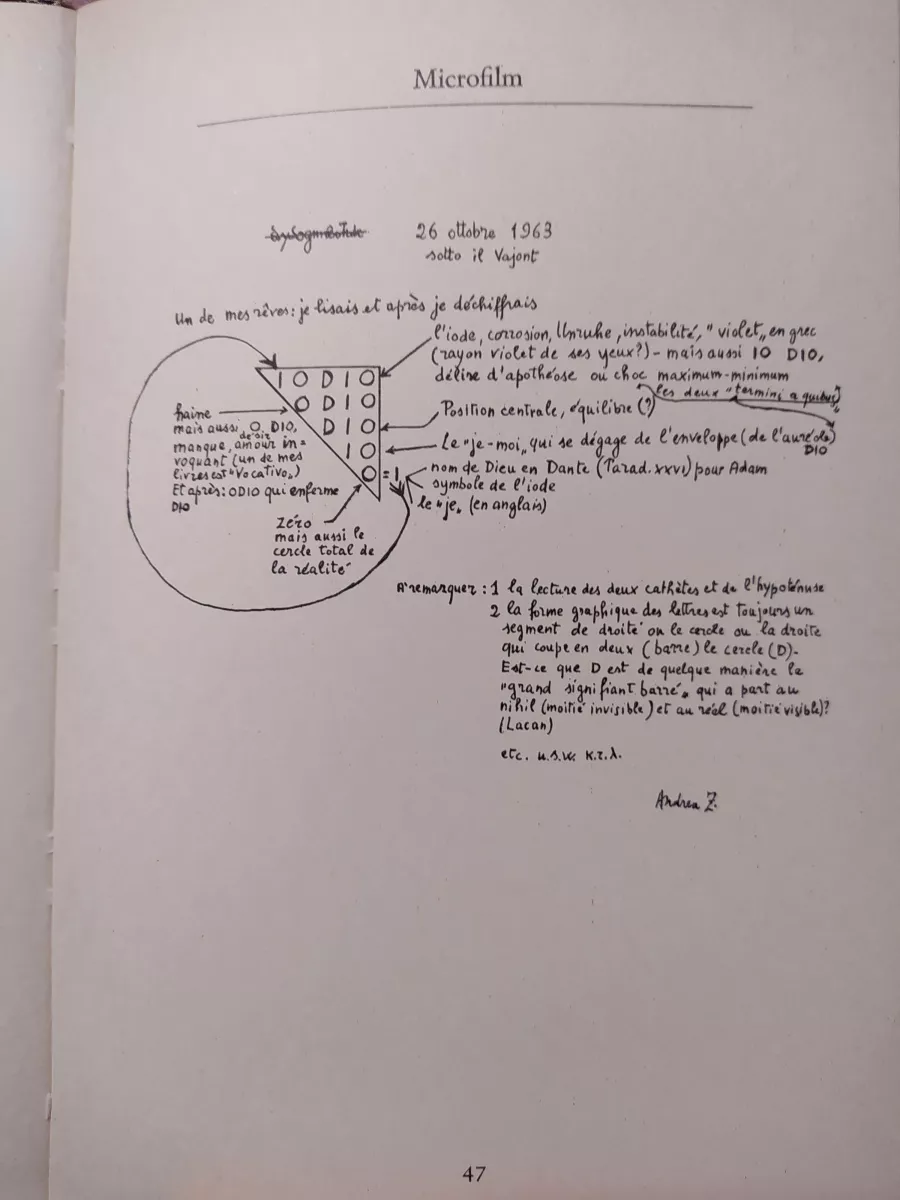 Microfilm
26 ottobre 1963
sotto il Vajont
Un de mes rêves: je lisais et après je déchiffrais
l'iode, corrosion, Unruhe, instabilité, "violet„ en grec
(rayon violet de ses yeux?) - mais aussi IO DIO,
délire d'apothéose ou choc maximum-minimum
(les deux "termini a quibus)
I O D I O
O D I O
D I O
I O
O = I
Position centrale, équilibre (?)
Le "je-moi„ qui se dégage de l'enveloppe (de l'auréole)
DIO
nom de Dieu en Dante (Parad. XXVI) pour Adam
symbole de l'iode
le "je„ (en anglais)
haine
mais aussi, O, DIO,
désir
manque, amour in=
voquant (un de mes
livres est "Vocativo„)
Et après: ODIO qui enferme
DIO
Zéro
mais aussi le
cercle total de
la réalité
A remarquer : 1 la lecture des deux cathètes et de l'hypoténuse
2 la forme graphique des lettres est toujours un
segment de droite ou le cercle ou la droite
qui coupe en deux (barre) le cercle (D)-
Est-ce que D est de quelque manière le
"grand signifiant barré„ qui a part au
nihil (moitié invisible) et au réel (moitié visible)?
(Lacan)
etc. u.s.w. κ.τ.λ.
Andrea Z.
47